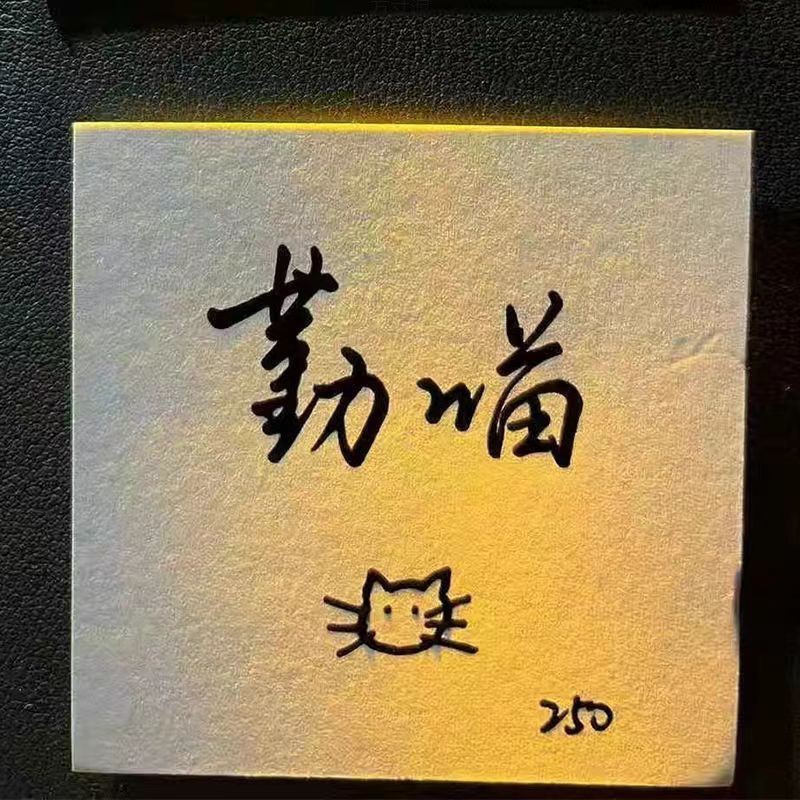 勤喵
250